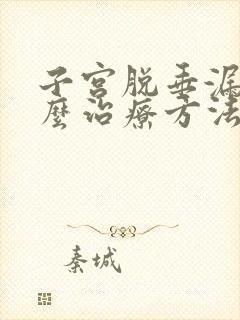 子宫脱垂漏
麼治療方法
秦城